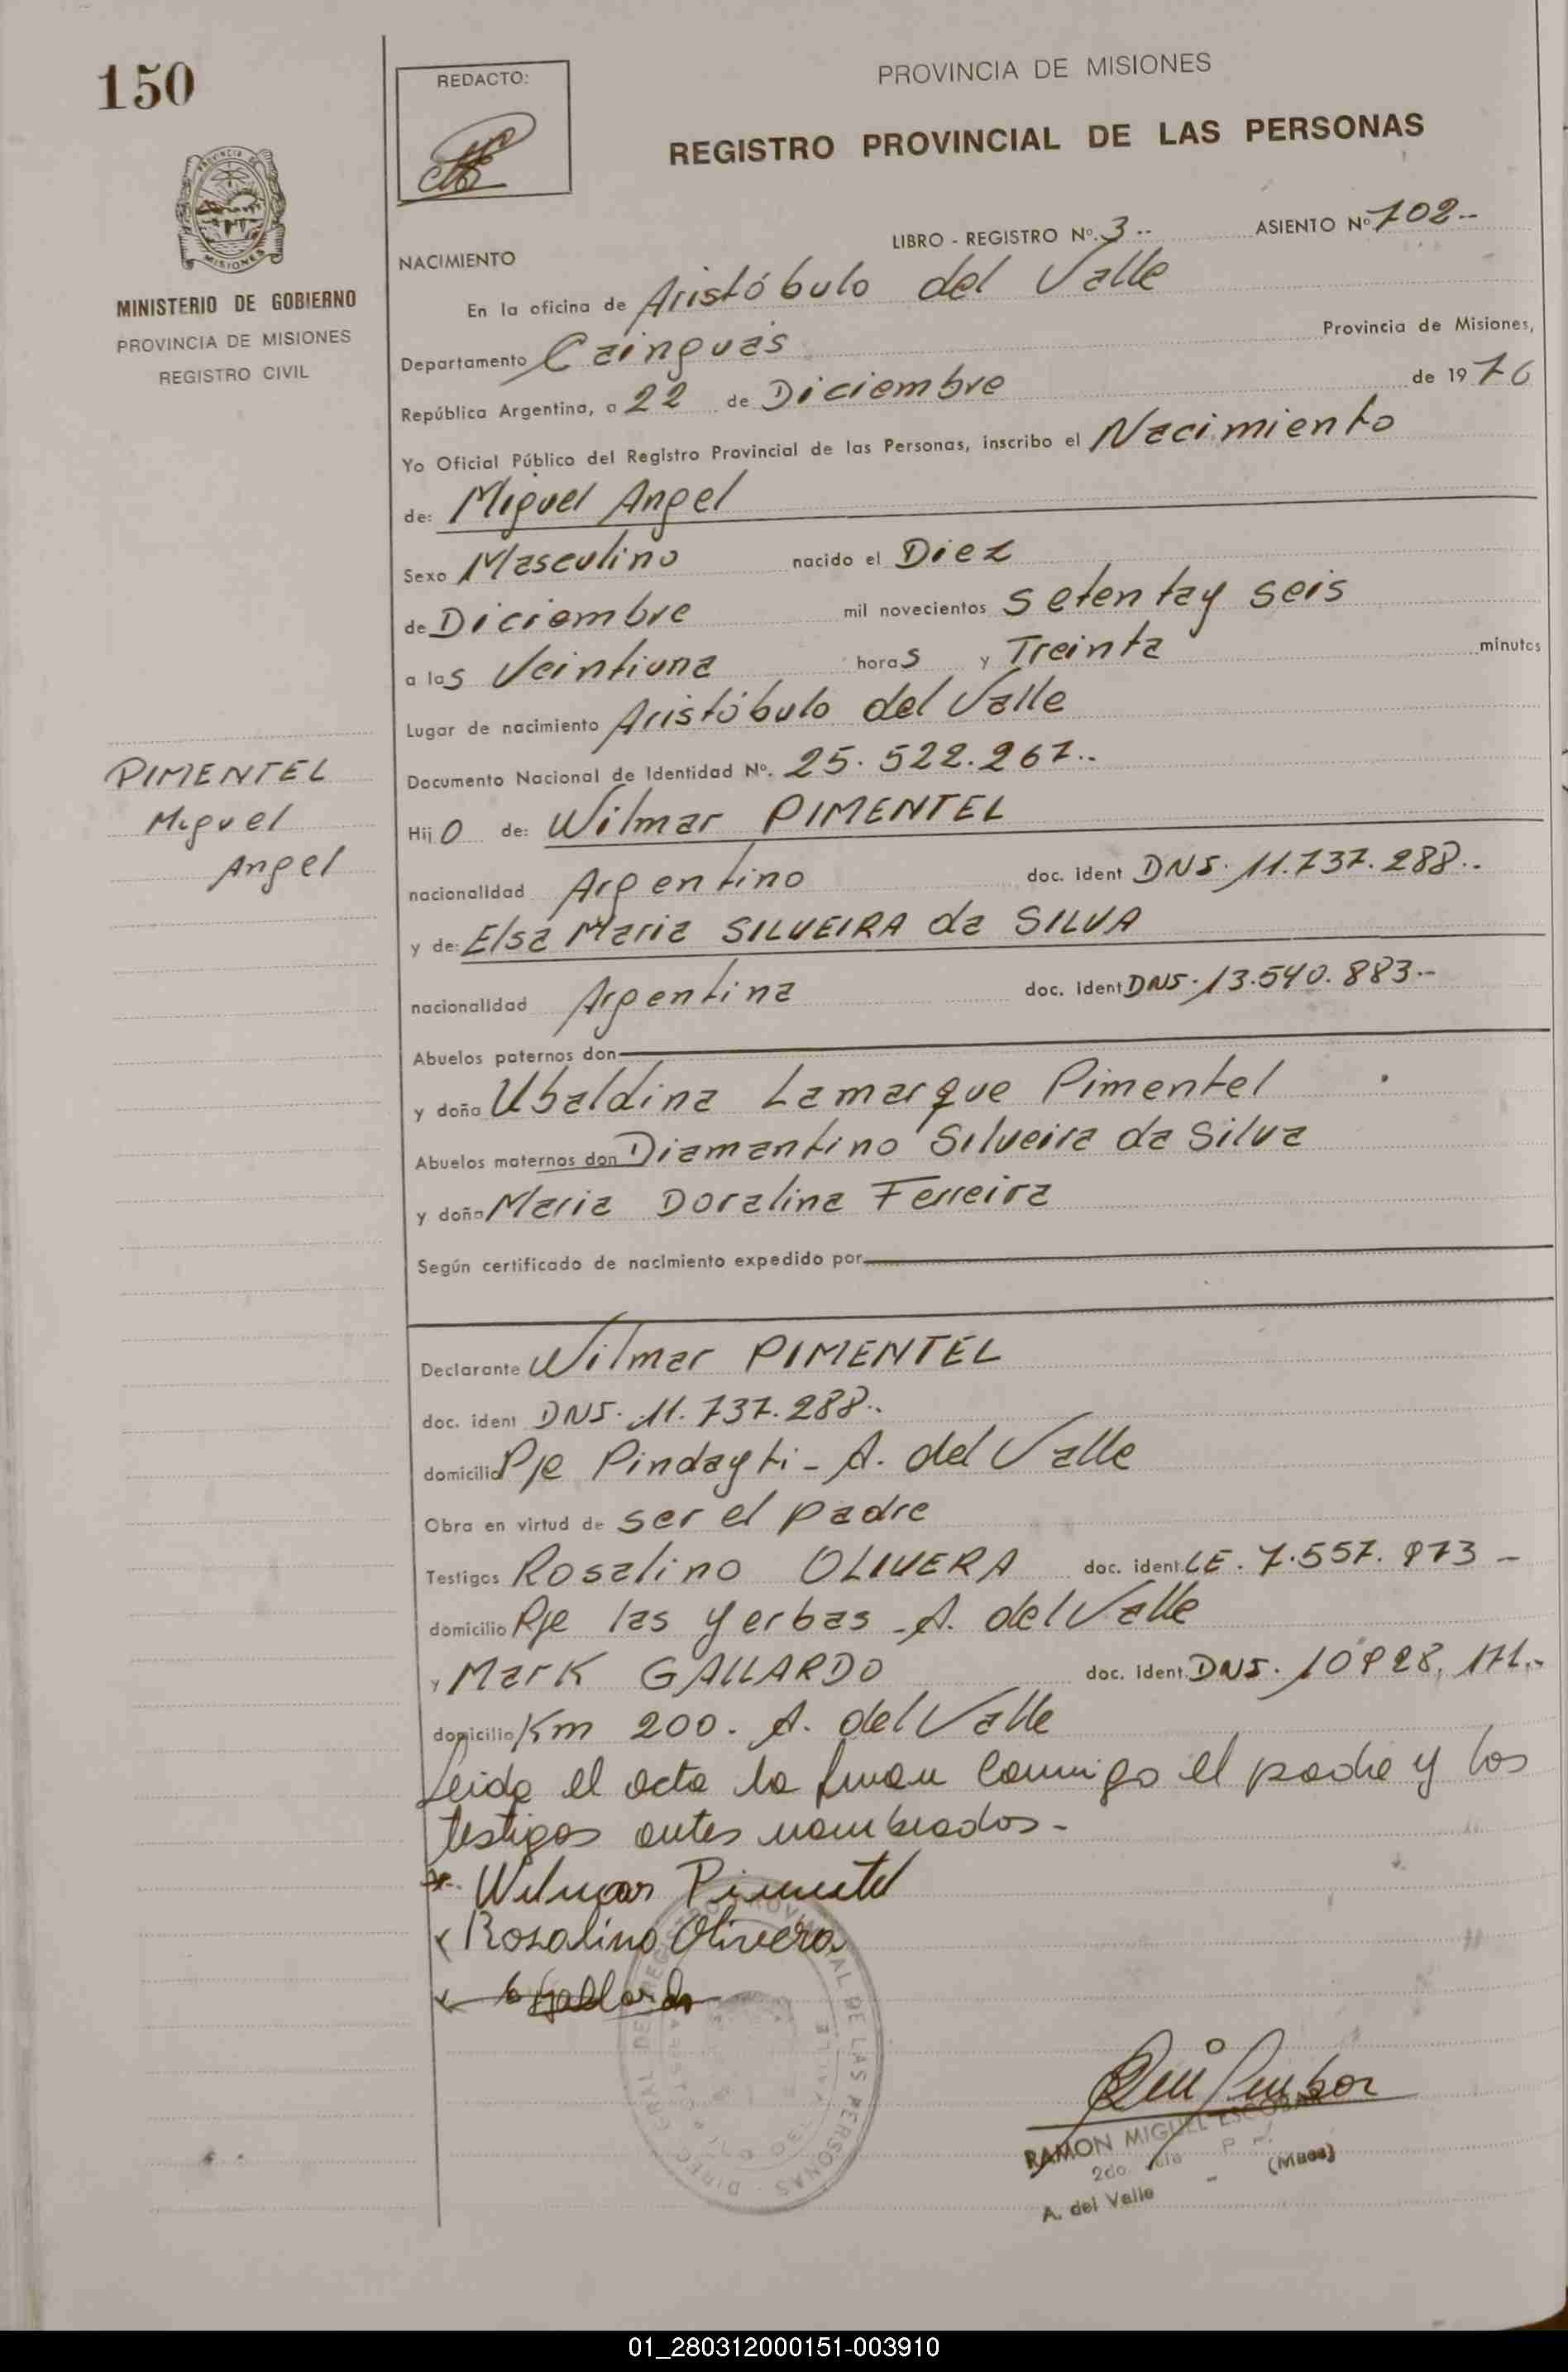 150
PROVINCIA DE MISIONES
MINISTERIO DE GOBIERNO
PROVINCIA DE MISIONES
REGISTRO CIVIL
REDACTO:
PROVINCIA DE MISIONES
REGISTRO PROVINCIAL DE LAS PERSONAS
LIBRO - REGISTRO Nº. 3-- ASIENTO Nº 702--
NACIMIENTO
En la oficina de Aristóbulo del Valle
Departamento Cainguás Provincia de Misiones,
República Argentina, a 22 de Diciembre de 1976
Yo Oficial Público del Registro Provincial de las Personas, inscribo el Nacimiento
de: Miguel Angel
Sexo Masculino nacido el Diez
de Diciembre mil novecientos setentay seis
a las Veintiuna horas y Treinta minutos
Lugar de nacimiento Aristóbulo del Valle
Documento Nacional de Identidad Nº. 25.522.267--
PIMENTEL
Miguel
Angel
Hijo de: Wilmar PIMENTEL
nacionalidad Argentino doc. ident DNI. 11.737.288--
y de: Elsa Maria SILVEIRA da SILVA
nacionalidad Argentina doc. ident DNI. 13.540.883--
Abuelos paternos don
y doña Ubaldina Lamarque Pimentel
Abuelos maternos don Diamantino Silveira da Silva
y doña Maria Doralina Ferreira
Según certificado de nacimiento expedido por
Declarante Wilmar PIMENTEL
doc. ident DNI. 11.737.288--
domicilio Pje Pindayti - A. del Valle
Obra en virtud de ser el padre
Testigos Rosalino OLIVERA doc. ident. LE. 7.557.973 -
domicilio Pje las yerbas - A. del Valle
y Mark GALLARDO doc. ident. DNI.
domicilio Km 200. A. del Valle
Leida el acta la firman conmigo el padre y los
testigos antes nombrados-
Wilmar Pimentel
Rosalino Olivera
Gallardo
DIREC. GRAL. DEL REGISTRO PROVINCIAL DE LAS PERSONAS
RAMON MIGUEL ESCOBAR
2do.
A. del Valle (Mnes)
01_280312000151-003910